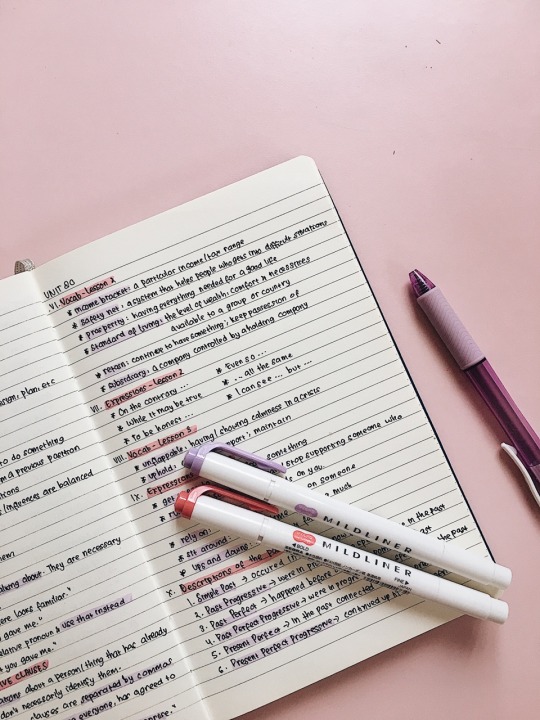 sign, plan, etc
to do something
m a previous position
itions
s/influences are balanced
hem)
alking about. They are necessary
here looks familiar."
u gave me."
elative pronoun & use that instead
at you gave me."
VE CLAUSES
ations about a person/thing that has already
don't necessarily identify them.
clauses are separated by commas
ing everyone, has agreed to
UNIT 80
VI. Vocab - Lesson 2
* income bracket: a particular income/tax range
* safety net: a system that helps people who gets into difficult situations
* prosperity: having everything needed for a good life
* standard of living: the level of wealth, comfort & necessities
available to a group or country
* retain: continue to have something; keep possession of
* subsidiary: a company controlled by a holding company
VII. Expressions - Lesson 2
* On the contrary ... * Even so ...
* While it may be true * ... all the same
* To be honest ... * I can see ... but ...
VIII. Vocab - Lesson 3
* unflappable: having/showing calmness in a crisis
* uphold: support; maintain
IX. Expressions
something
/stop supporting someone who
s on you.
on someone
much
* rely on
* sit around:
* ups and downs:
X. Descriptions of the pa
1. Simple Past → occured
2. Past Progressive → were in pro
3. Past Perfect → happened before
4. Past Perfect Progressive → were in progre
5. Present Perfect → in the past connected
6. Present Perfect Progressive → continued up
the past
MILDLINER
BOLD
MILDLINER
FINE